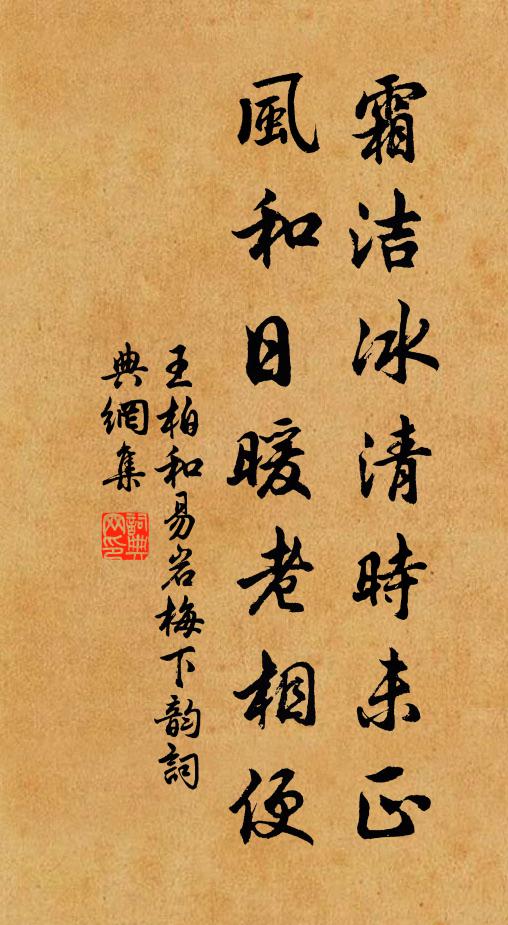 霜洁冰清時未正
風和日暖老相便
王柏和易岩梅下韵詞
典網集
詞典
网印